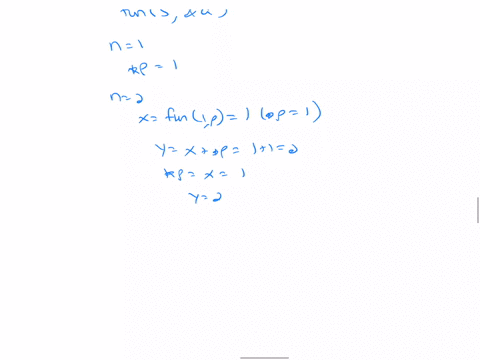 n=1
*p = 1
n=2
x = fun(1,p) = 1 (*p = 1)
y = x + *p = 1+1 = 2
*p = x = 1
y = 2